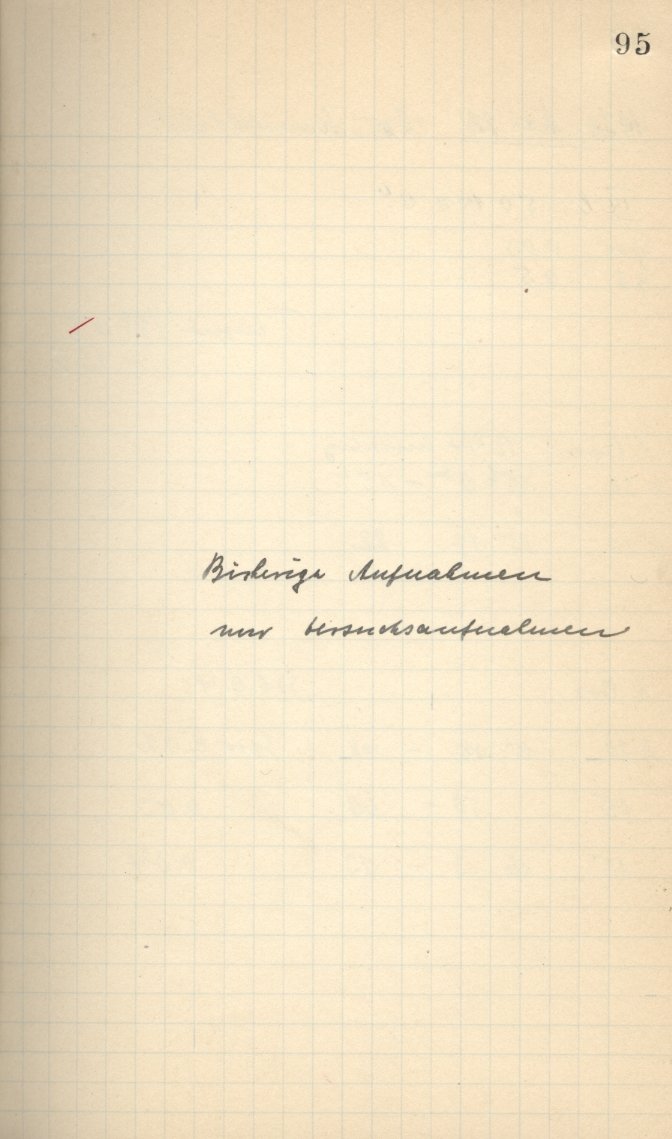 95
Bisherige Aufnahmen
nur Versuchsaufnahmen